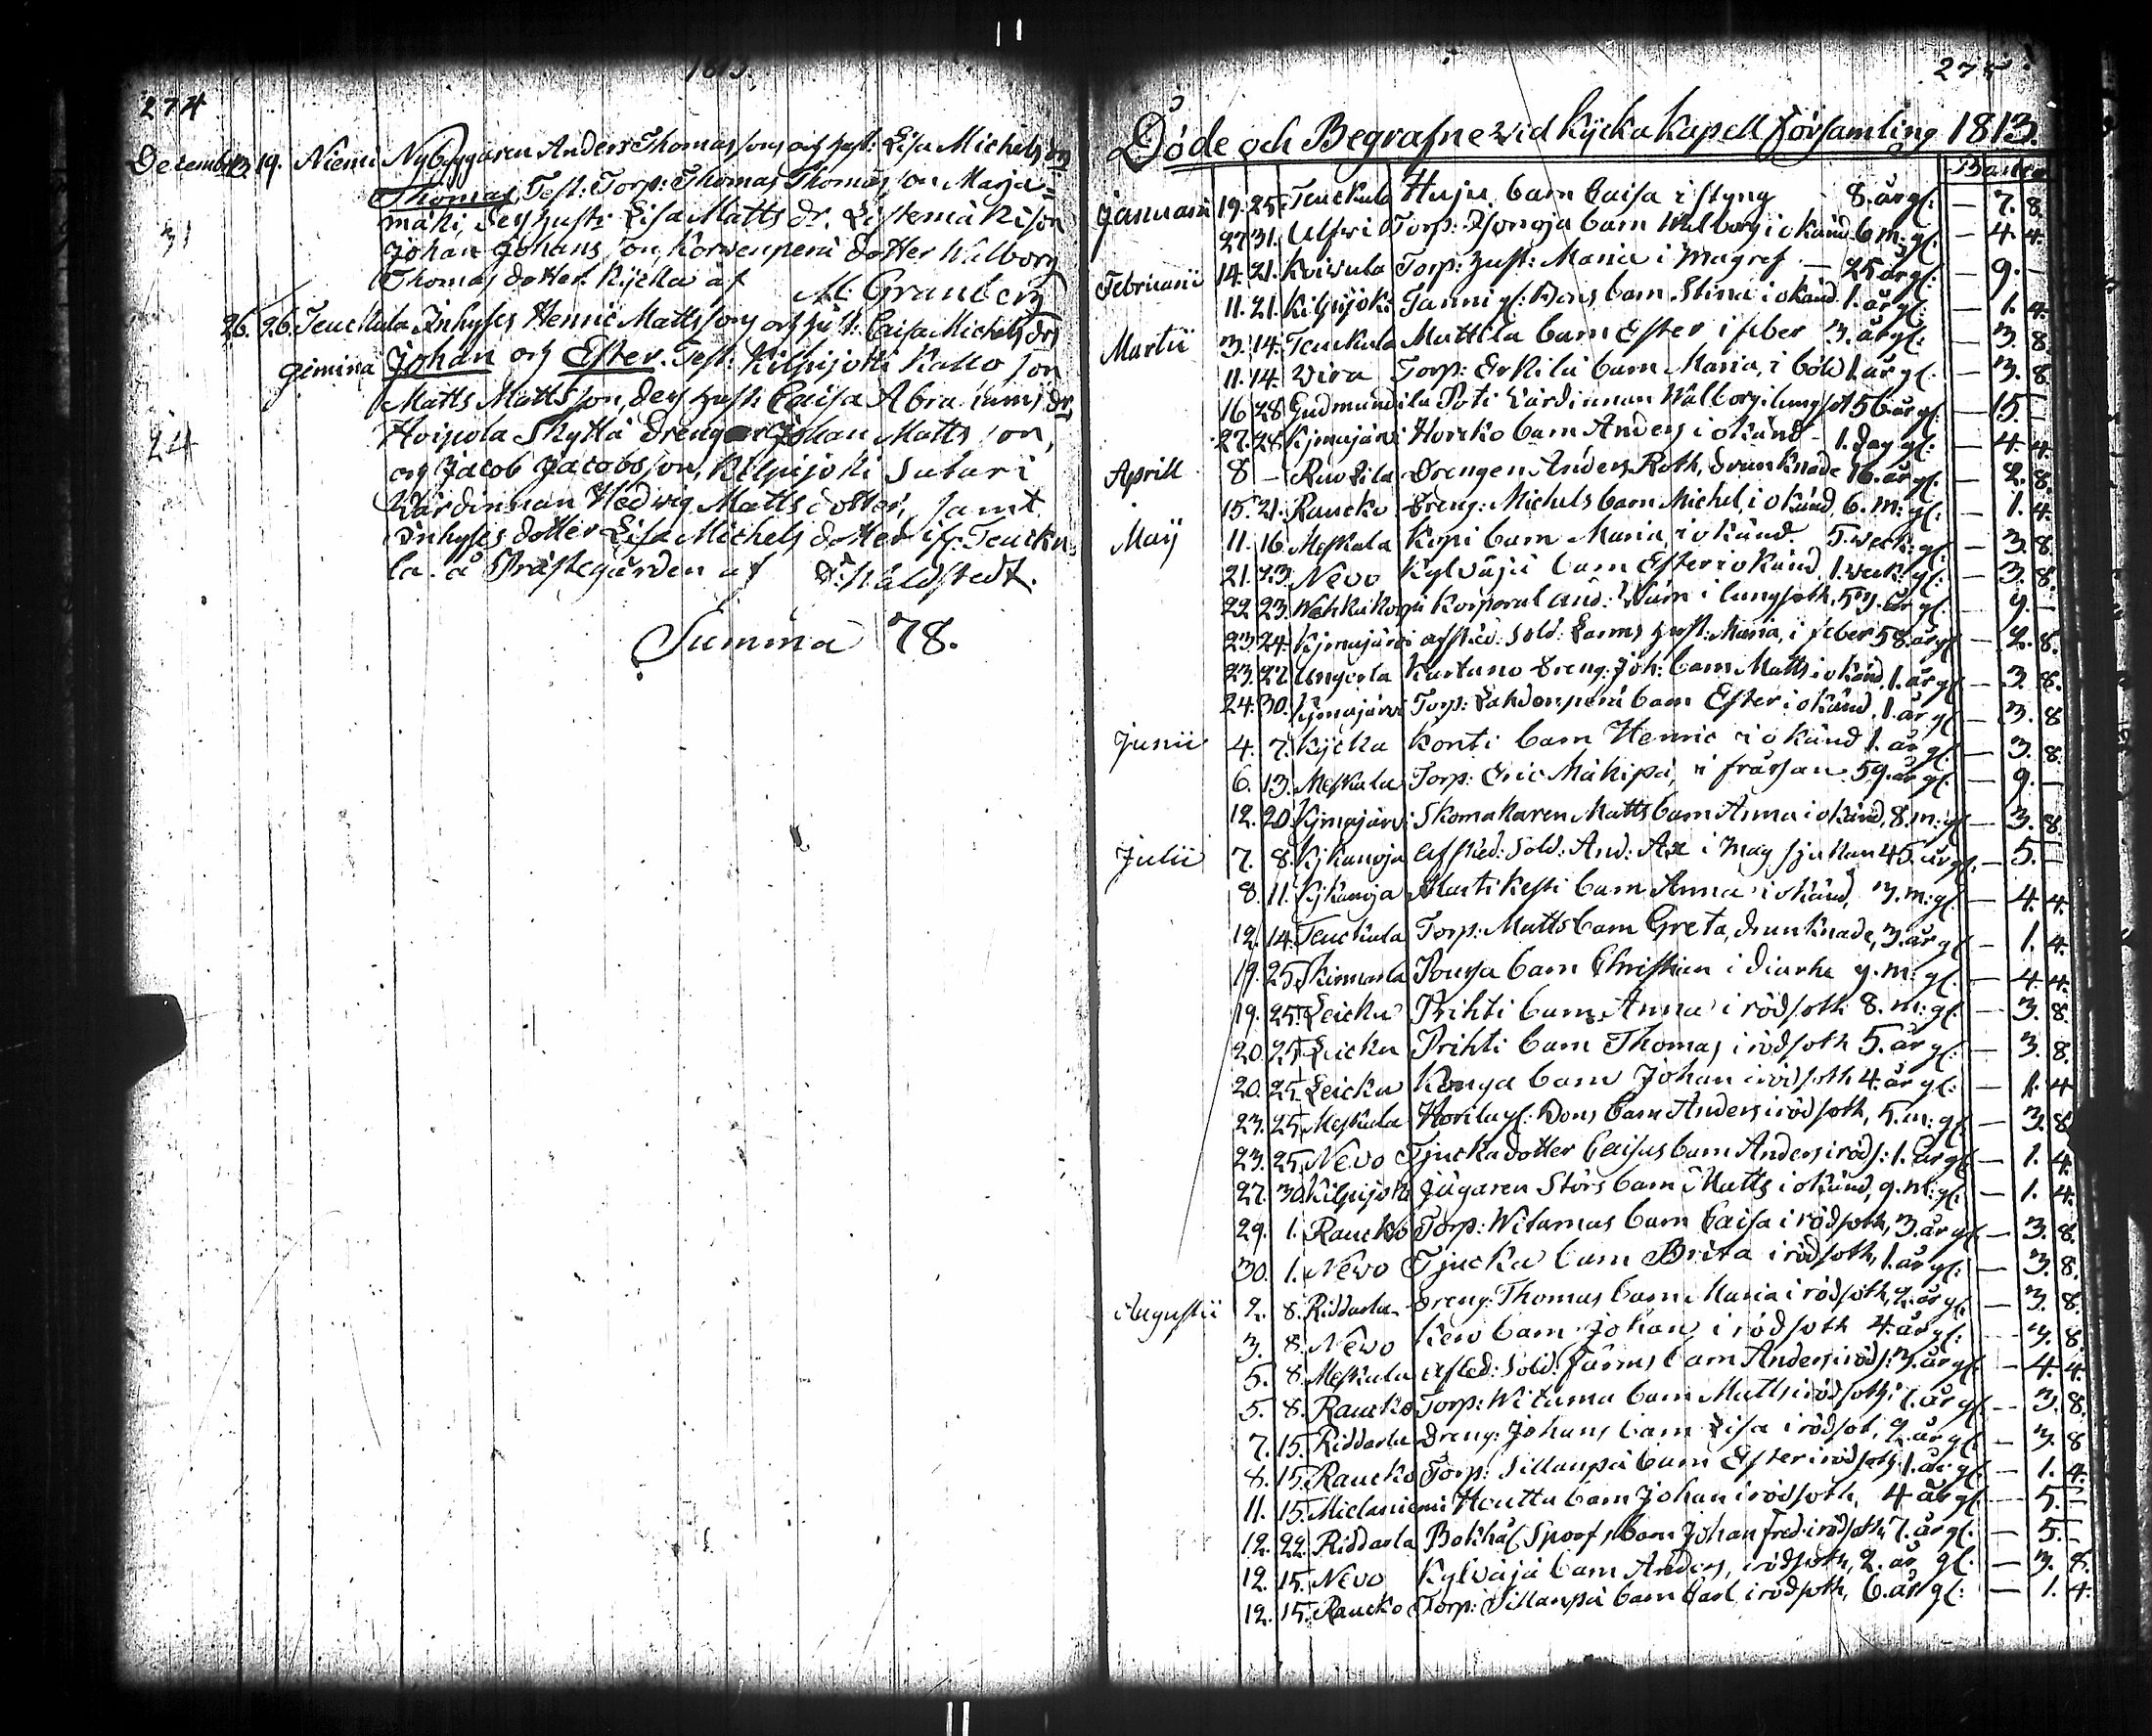 1813.
274
December 13. 19. Niemi Nybyggaren Anders Thomassons och hust: Lisa Michelsdr
Thomas, Test: Torp: Thomas Thomasson Marja=
mäki, des hustr Lisa Matts dr. Listemäki son
31
Johan Johansson, Korwenperä dotter Walborg
Thomasdotter. Kycka af M: Granberg
26. 26. Teuckula Inhyses Henric Mattssons och hust: Caisa Michelsdrs
gemina Johan och Ester. Test: Kilpijoki Kallo son
Matts Mattsson, des hust: Caisa Abrahams dr,
24
Hoispola Skyttä drengar Johan Mattsson,
och Jacob Jacobsson, Kilpijoki Sutari
Wärdinnan Hedvig Mattsdotter, samt
Inhyses dotter Lisa Michelsdotter ifr: Teucku=
la. å Prästegården af D: Ståldstedt.
Summa 78.
275
Döde och Begrafne wid Kycka Kapell Församling 1813.
Januarii 19. 25. Teuckula Huju barn Caisa i styng 8. år gl: — 7. 8.
27 31. Ulfvi Torp: barn Walborg i okänd 6 m: gl: — 4. 4.
Februarii 14. 21. Koivula Torp: hust: Maria i magref — 25 år gl: — 9. —
11. 21. Kilpijoki Tanni gl: Bons barn Stina i okänd 1. år gl: — 1. 4.
Martii 3. 14. Teuckula Mattila barn Ester i feber 3. år gl: — 3. 8.
11. 14. Vira Torp: Erkilä barn Maria, i böld 1. år gl: — 3. 8.
16 28 Gudmundila Poti Wärdinnan Walborg i lungsot 56 år gl: — 15. —
27. 28. Kjmajärvi Horcko barn Anders i okänd — 1. dag gl: — 4. 4.
Aprill 8 — Ruskila Drengen Anders Roth, drunknade 16. år gl: — 2. 8.
15. 21. Raucko Dreng: Michels barn Michel, i okänd, 6. m: gl: — 1. 4.
Maij 11. 16. Meskala Kopi barn Maria i okänd. 5. weck: gl: — 3. 8.
21. 23. Nevo Kylväjä barn Ester i okänd, 1. weck: gl: — 3. 8.
22 23. Wehkakorpi Korporal And: Wäm i lungsoth, 59. år gl: — 9. —
23. 24. Kjmajärvi afsked: Sold: Larms hust: Maria, i feber 58. år gl — 2. 8.
23. 27. Ungerla Kartano dreng: Joh: barn Matts i okänd, 1. år gl — 3. 8.
24. 30. Kjmajärvi Torp: Lahdenperä barn Ester i okänd, 1. år gl — 3. 8
Junii 4. 7. Kycka Konti barn Henric i okänd 1. år gl: — 3. 8.
6. 13. Meskala Torp: Eric Mäkipä, i frässan 59. år gl: — 9. —
12. 20. Kjmajärvi Skomakaren Matts barn Anna i okänd, 8. m: gl — 3. 8.
Julii 7. 8. Kjkanoja Afsked: Sold: And: Ax i mag sjukan 45. år gl. — 5. —
8. 11. Kjkanoja Martikesti barn Anna i okänd, 3. m: gl: — 4. 4.
12. 14. Teuckula Torp: Matts barn Greta, drunknade, 3. år gl — 1. 4.
19. 25. Skinnarla Pousa barn Christian i diarhe 9. m: gl. — 4. 4.
19. 25. Leicku Prihti barn Anna i rödsoth 8. m: gl. — 3. 8.
20. 25. Leicku Prihti barn Thomas i rödsoth 5. år gl: — 3. 8.
20. 25. Leicku Konga barn Johan i rödsoth 4. år gl: — 1. 4
23. 25. Meskala Horila gl: Bons barn Anders i rödsoth, 5. m: gl — 3. 8
23. 25. Nevo Tjucka dotter Caisas barn Anders i röds: 1. år gl — 1. 4.
27. 30. Kilpijoki Jägaren Störs barn Matts i okänd, 9. m: gl: — 1. 4.
29. 1. Raucko Torp: Witamas barn Caisa i rödsoth, 3. år gl — 3. 8.
30. 1. Nevo Tjucka barn Brita i rödsoth, 1. år gl: — 3. 8.
Augustii 2. 8. Riddarla Dreng: Thomas barn Maria i rödsoth, 2. år gl: — 3. 8.
3. 8. Nevo Kero barn Johan i rödsoth 4. år gl: — 3. 8.
5. 8. Meskala Afsked: Sold: Färms barn Anders i röds: 3. år gl: — 4. 4.
5. 8. Raucko Torp: Witama barn Matts i rödsoth, 1. år gl: — 3. 8.
7. 15. Riddarla Dreng: Johans barn Lisa i rödsot, 2. år gl: — 3. 8
8. 15. Raucko Torp: Sillanpä barn Ester i rödsoth 1. år gl: — 1. 4.
11. 15. Mielaniemi Houttu barn Johan i rödsoth, 4 år gl: — 5. —
12. 22. Riddarla Bokhål: Spoofs barn Johan Fred: i rödsoth, 7. år gl: — 5. —
12. 15. Nevo Kylväjä barn Anders, i rödsoth, 2. år gl: — 3. 8.
12. 15. Raucko Torp: Sillanpä barn Carl i rödsoth, 6. år gl: — 1. 4.